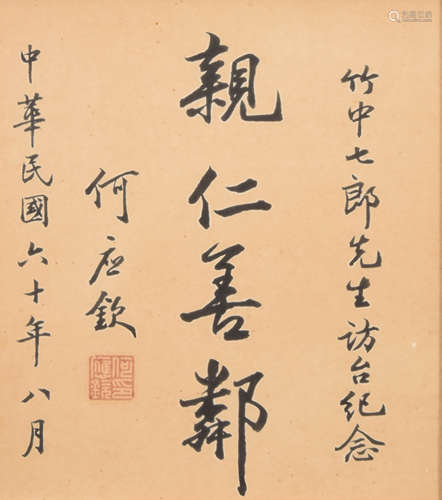 竹中七郎先生访台纪念
親仁善鄰
何应欽
中華民國六十年八月